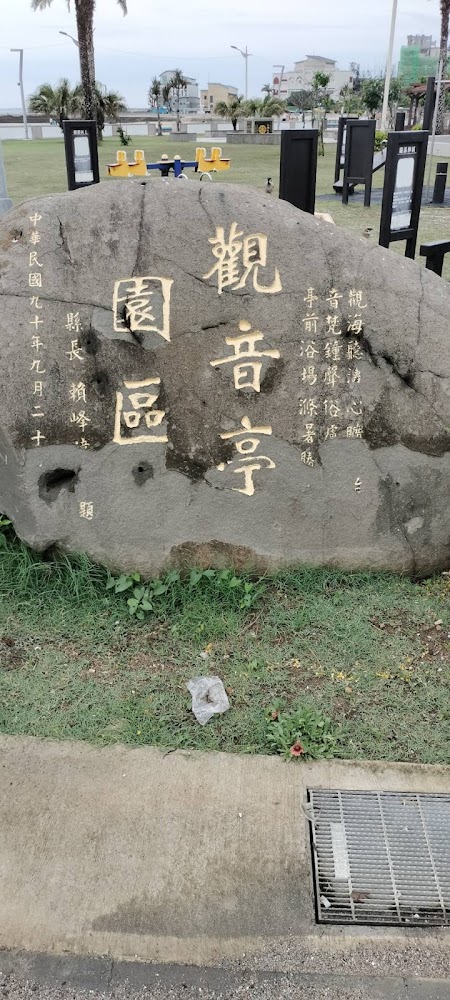 觀海聽濤心曠
音梵鐘聲俗慮
亭前浴場滌暑勝
台
觀音亭
園區
縣長 賴峰
題
中華民國九十年九月二十